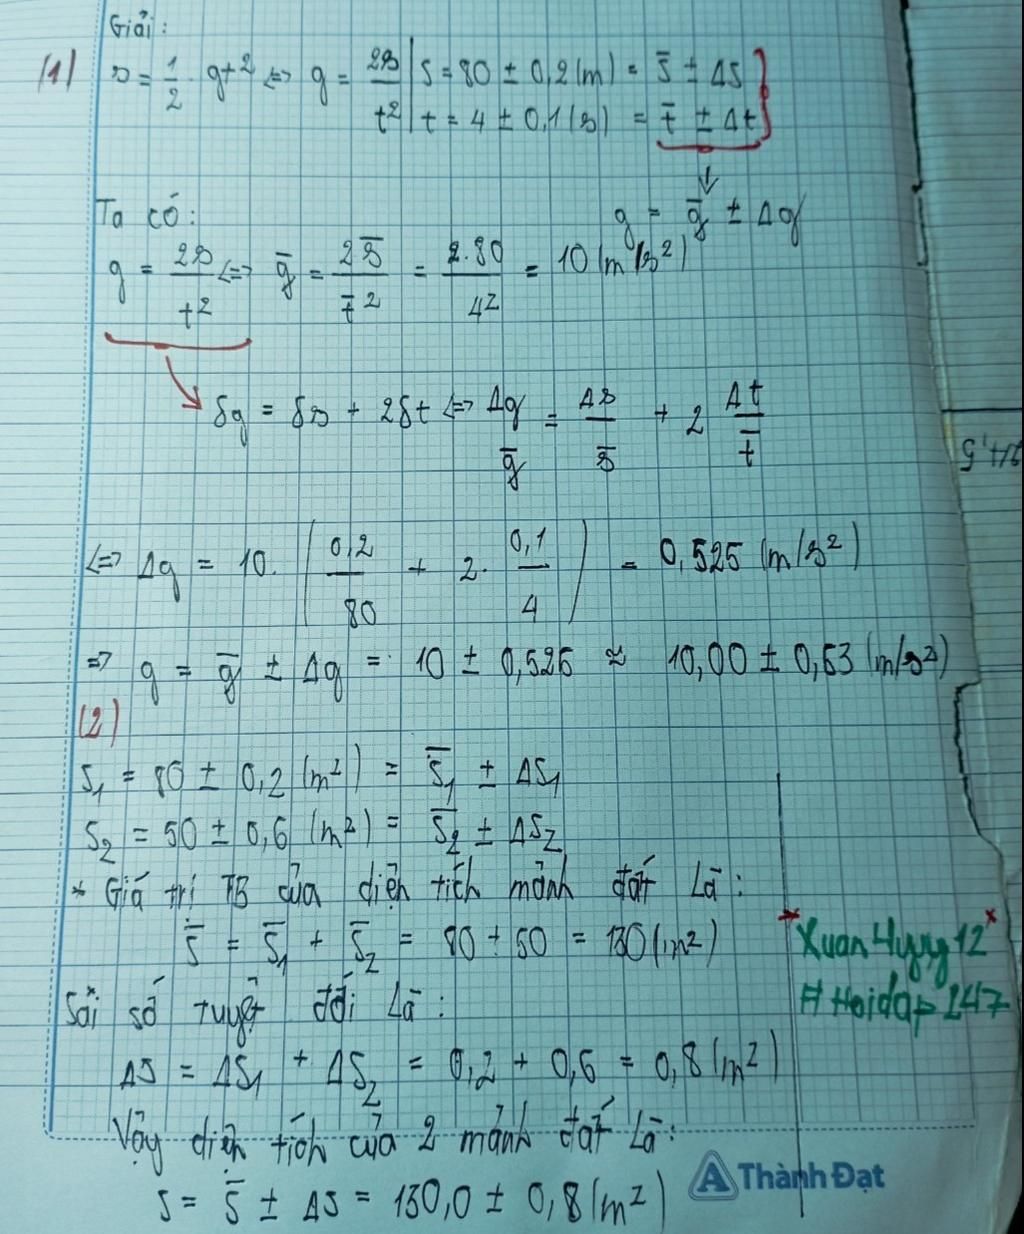 Giải:
(1) s = 1/2 . gt² <=> g = 2s/t² | s = 80 ± 0,2 (m) = s̄ ± Δs
t = 4 ± 0,1 (s) = t̄ ± Δt
↓
Ta có: g = ḡ ± Δg
g = 2s/t² <=> ḡ = 2s̄/t̄² = 2.80/4² = 10 (m/s²)
δg = δs + 2δt <=> Δg/ḡ = Δs/s̄ + 2 Δt/t̄
<=> Δg = 10. (0,2/80 + 2. 0,1/4) = 0,525 (m/s²)
=> g = ḡ ± Δg = 10 ± 0,525 ≈ 10,00 ± 0,53 (m/s²)
(2)
S₁ = 80 ± 0,2 (m²) = S̄₁ ± ΔS₁
S₂ = 50 ± 0,6 (m²) = S̄₂ ± ΔS₂
* Giá trị TB của diện tích mảnh đất là:
S̄ = S̄₁ + S̄₂ = 80 + 50 = 130 (m²)
Xuan Hung 12
# Hoidap 247
Sai số tuyệt đối là:
ΔS = ΔS₁ + ΔS₂ = 0,2 + 0,6 = 0,8 (m²)
Vậy diện tích của 2 mảnh đất là:
S = S̄ ± ΔS = 130,0 ± 0,8 (m²)
Thành Đạt